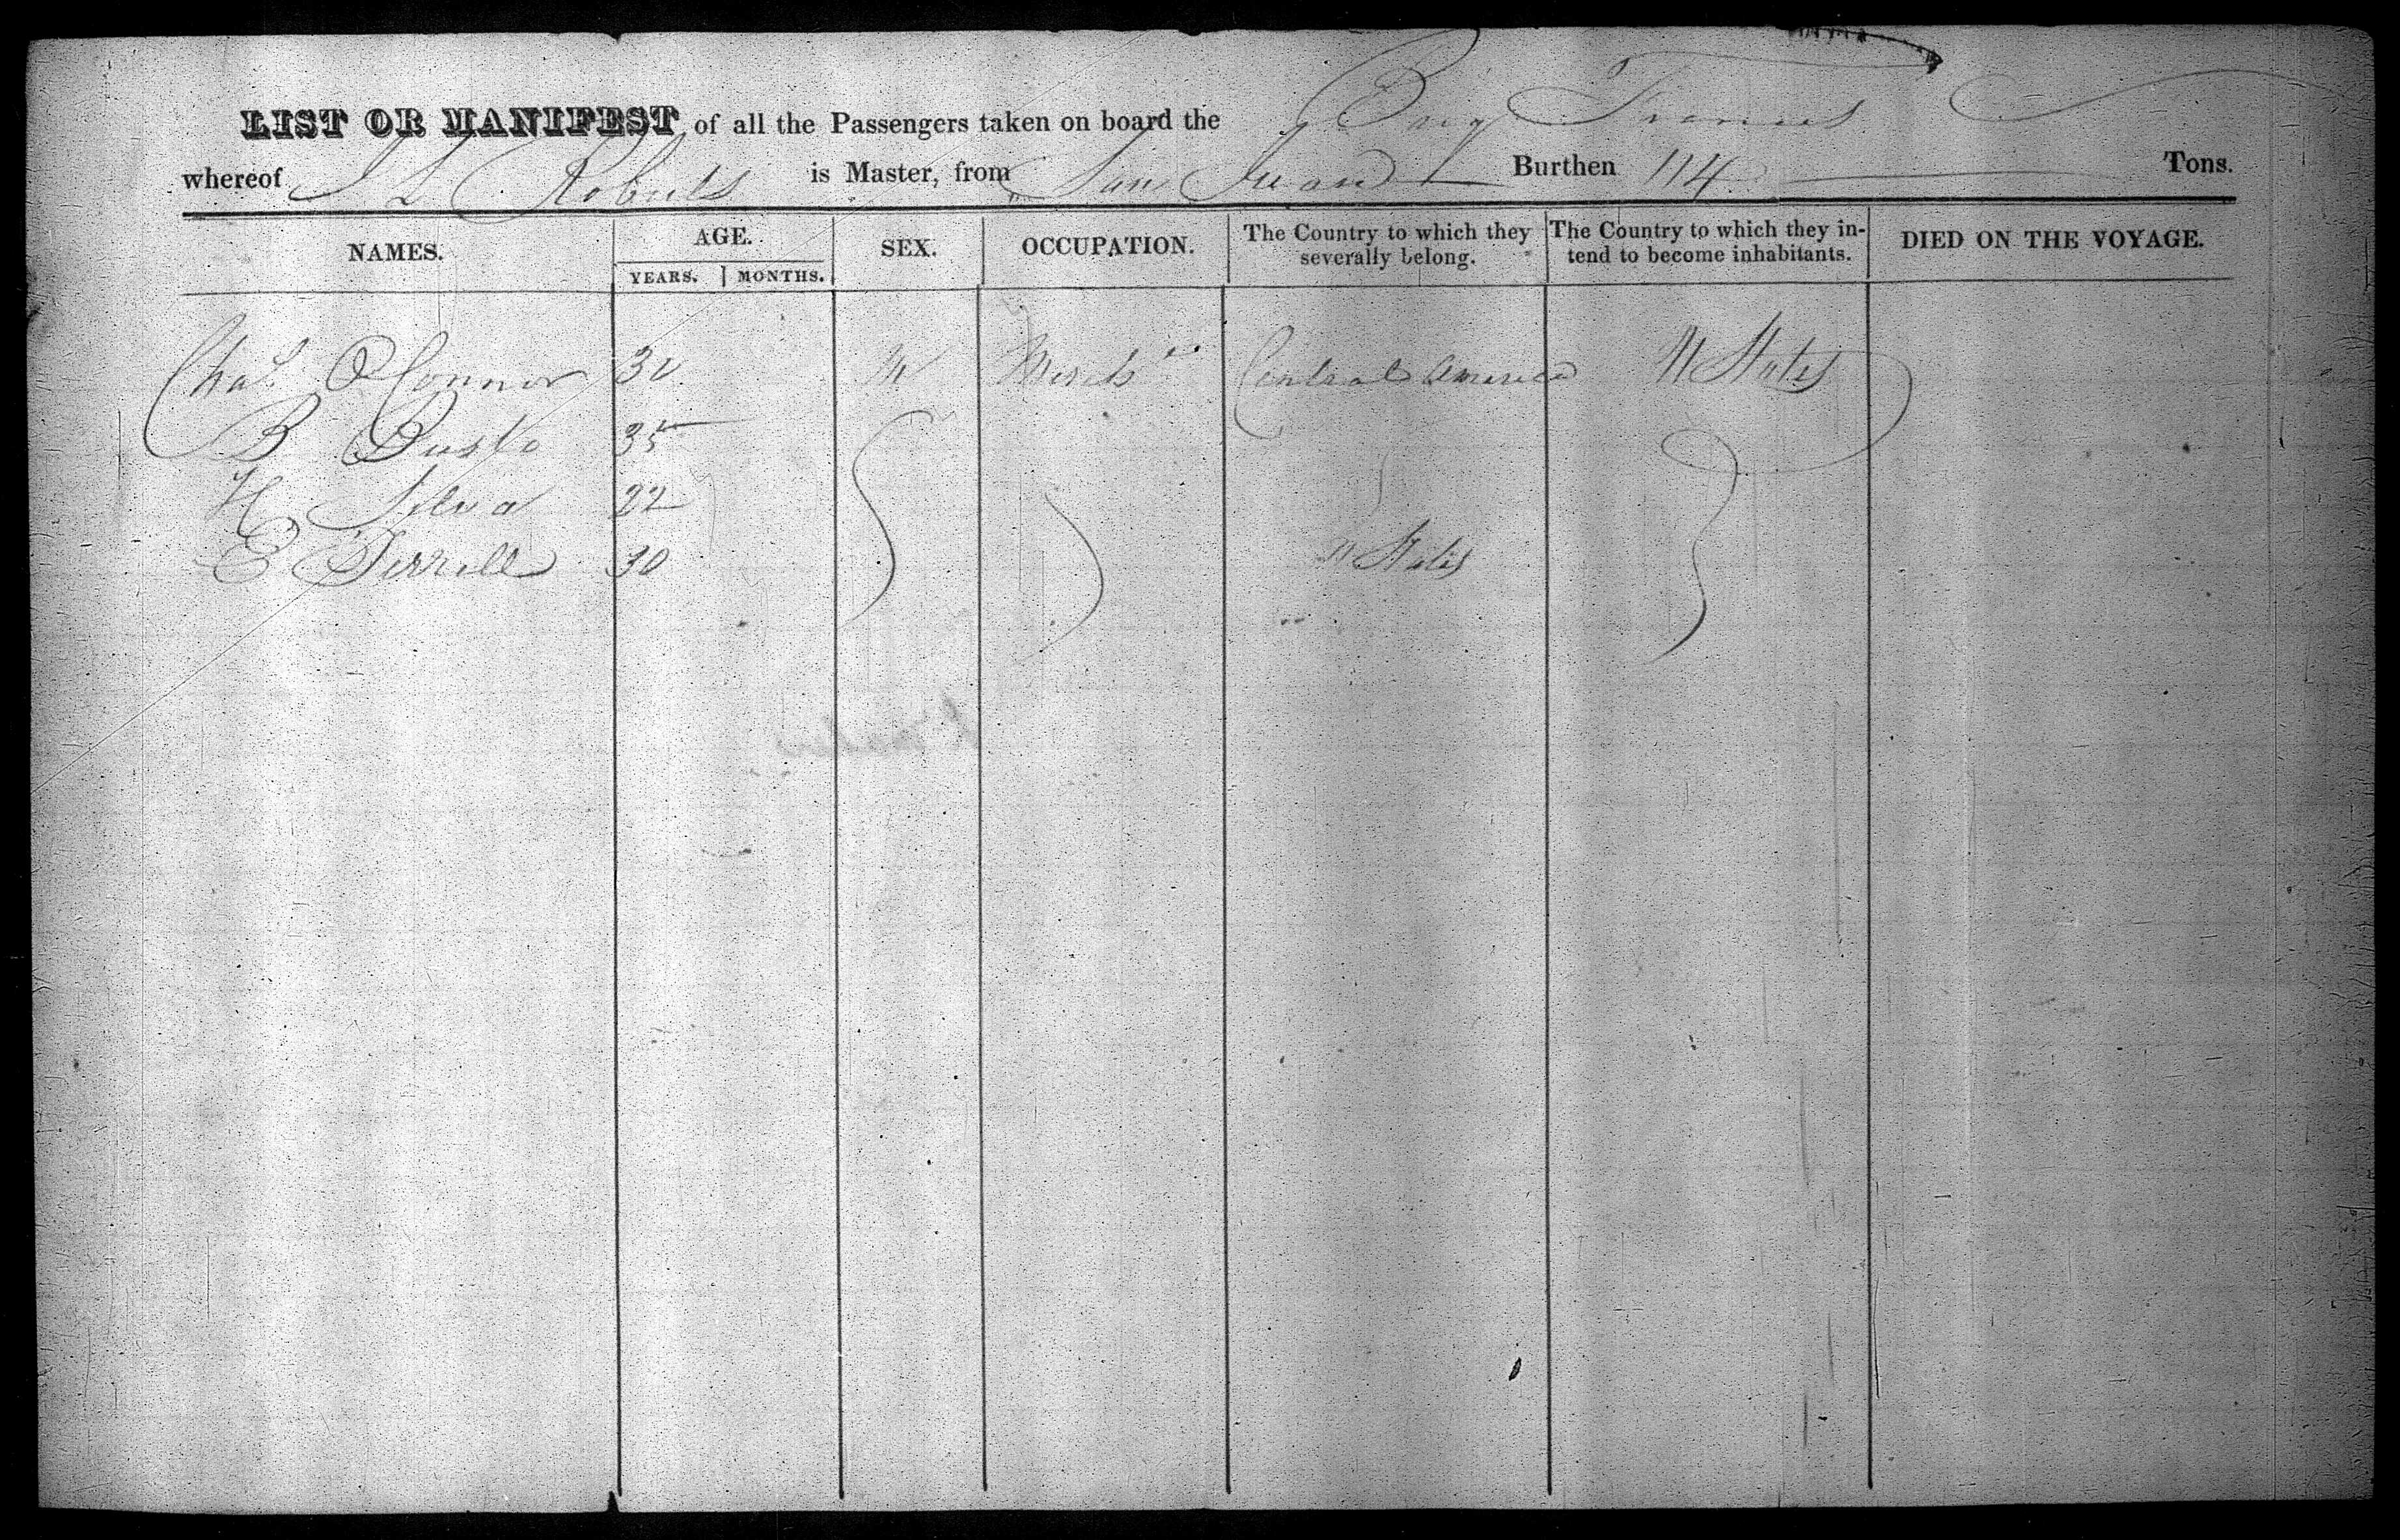 LIST OR MANIFEST of all the Passengers taken on board the Brig Francis
whereof J L Roberts is Master, from San Juan Burthen 114 Tons.
NAMES. AGE. YEARS. MONTHS. SEX. OCCUPATION. The Country to which they severally belong. The Country to which they intend to become inhabitants. DIED ON THE VOYAGE.
Chas. O'Connor M Merch Central America U States
B Busto 35
H Silva 22
E Tirrell 30 U States